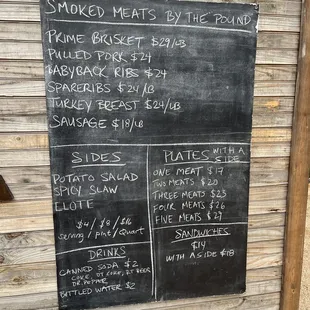 SMOKED MEATS BY THE POUND
PRIME BRISKET $29/LB
PULLED PORK $24
BABYBACK RIBS $24
SPARERIBS $24/LB
TURKEY BREAST $24/LB
SAUSAGE $18/LB
SIDES
POTATO SALAD
SPICY SLAW
ELOTE
$4/$8/$16
serving/pint/Quart
DRINKS
CANNED SODA $2
COKE, DT COKE, RT BEER
DR. PEPPER
BOTTLED WATER $2
PLATES WITH A SIDE
ONE MEAT $17
TWO MEATS $20
THREE MEATS $23
FOUR MEATS $26
FIVE MEATS $29
SANDWICHES
$14
WITH A SIDE $18